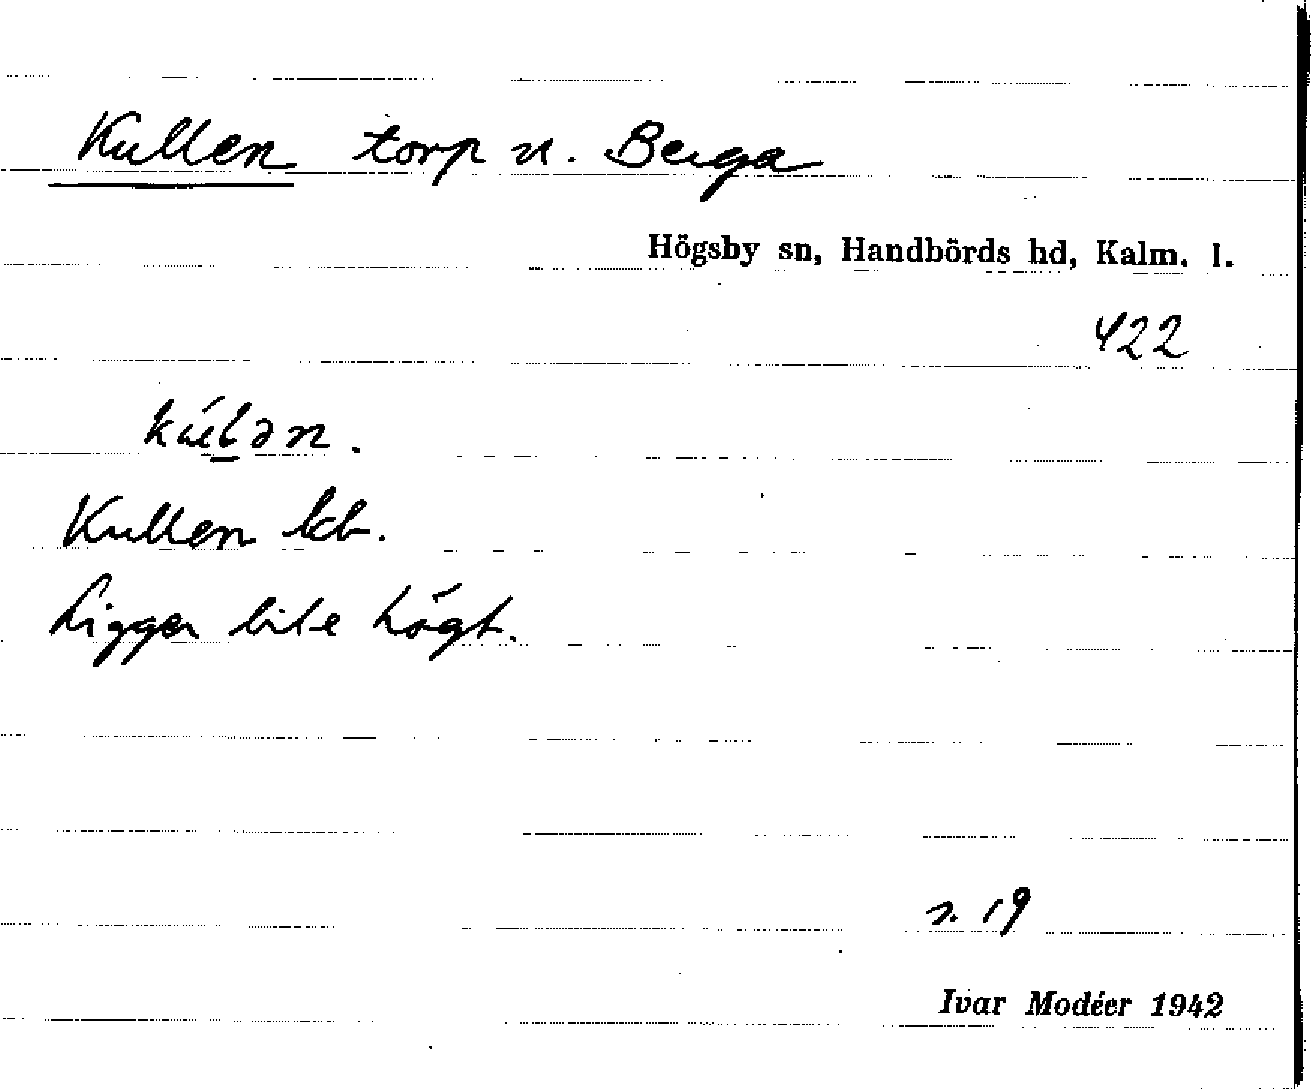 Kullen torp u. Berga
Högsby sn, Handbörds hd, Kalm. l.
422
Kullen kb.
Ligger lite högt.
s. 19
Ivar Modéer 1942